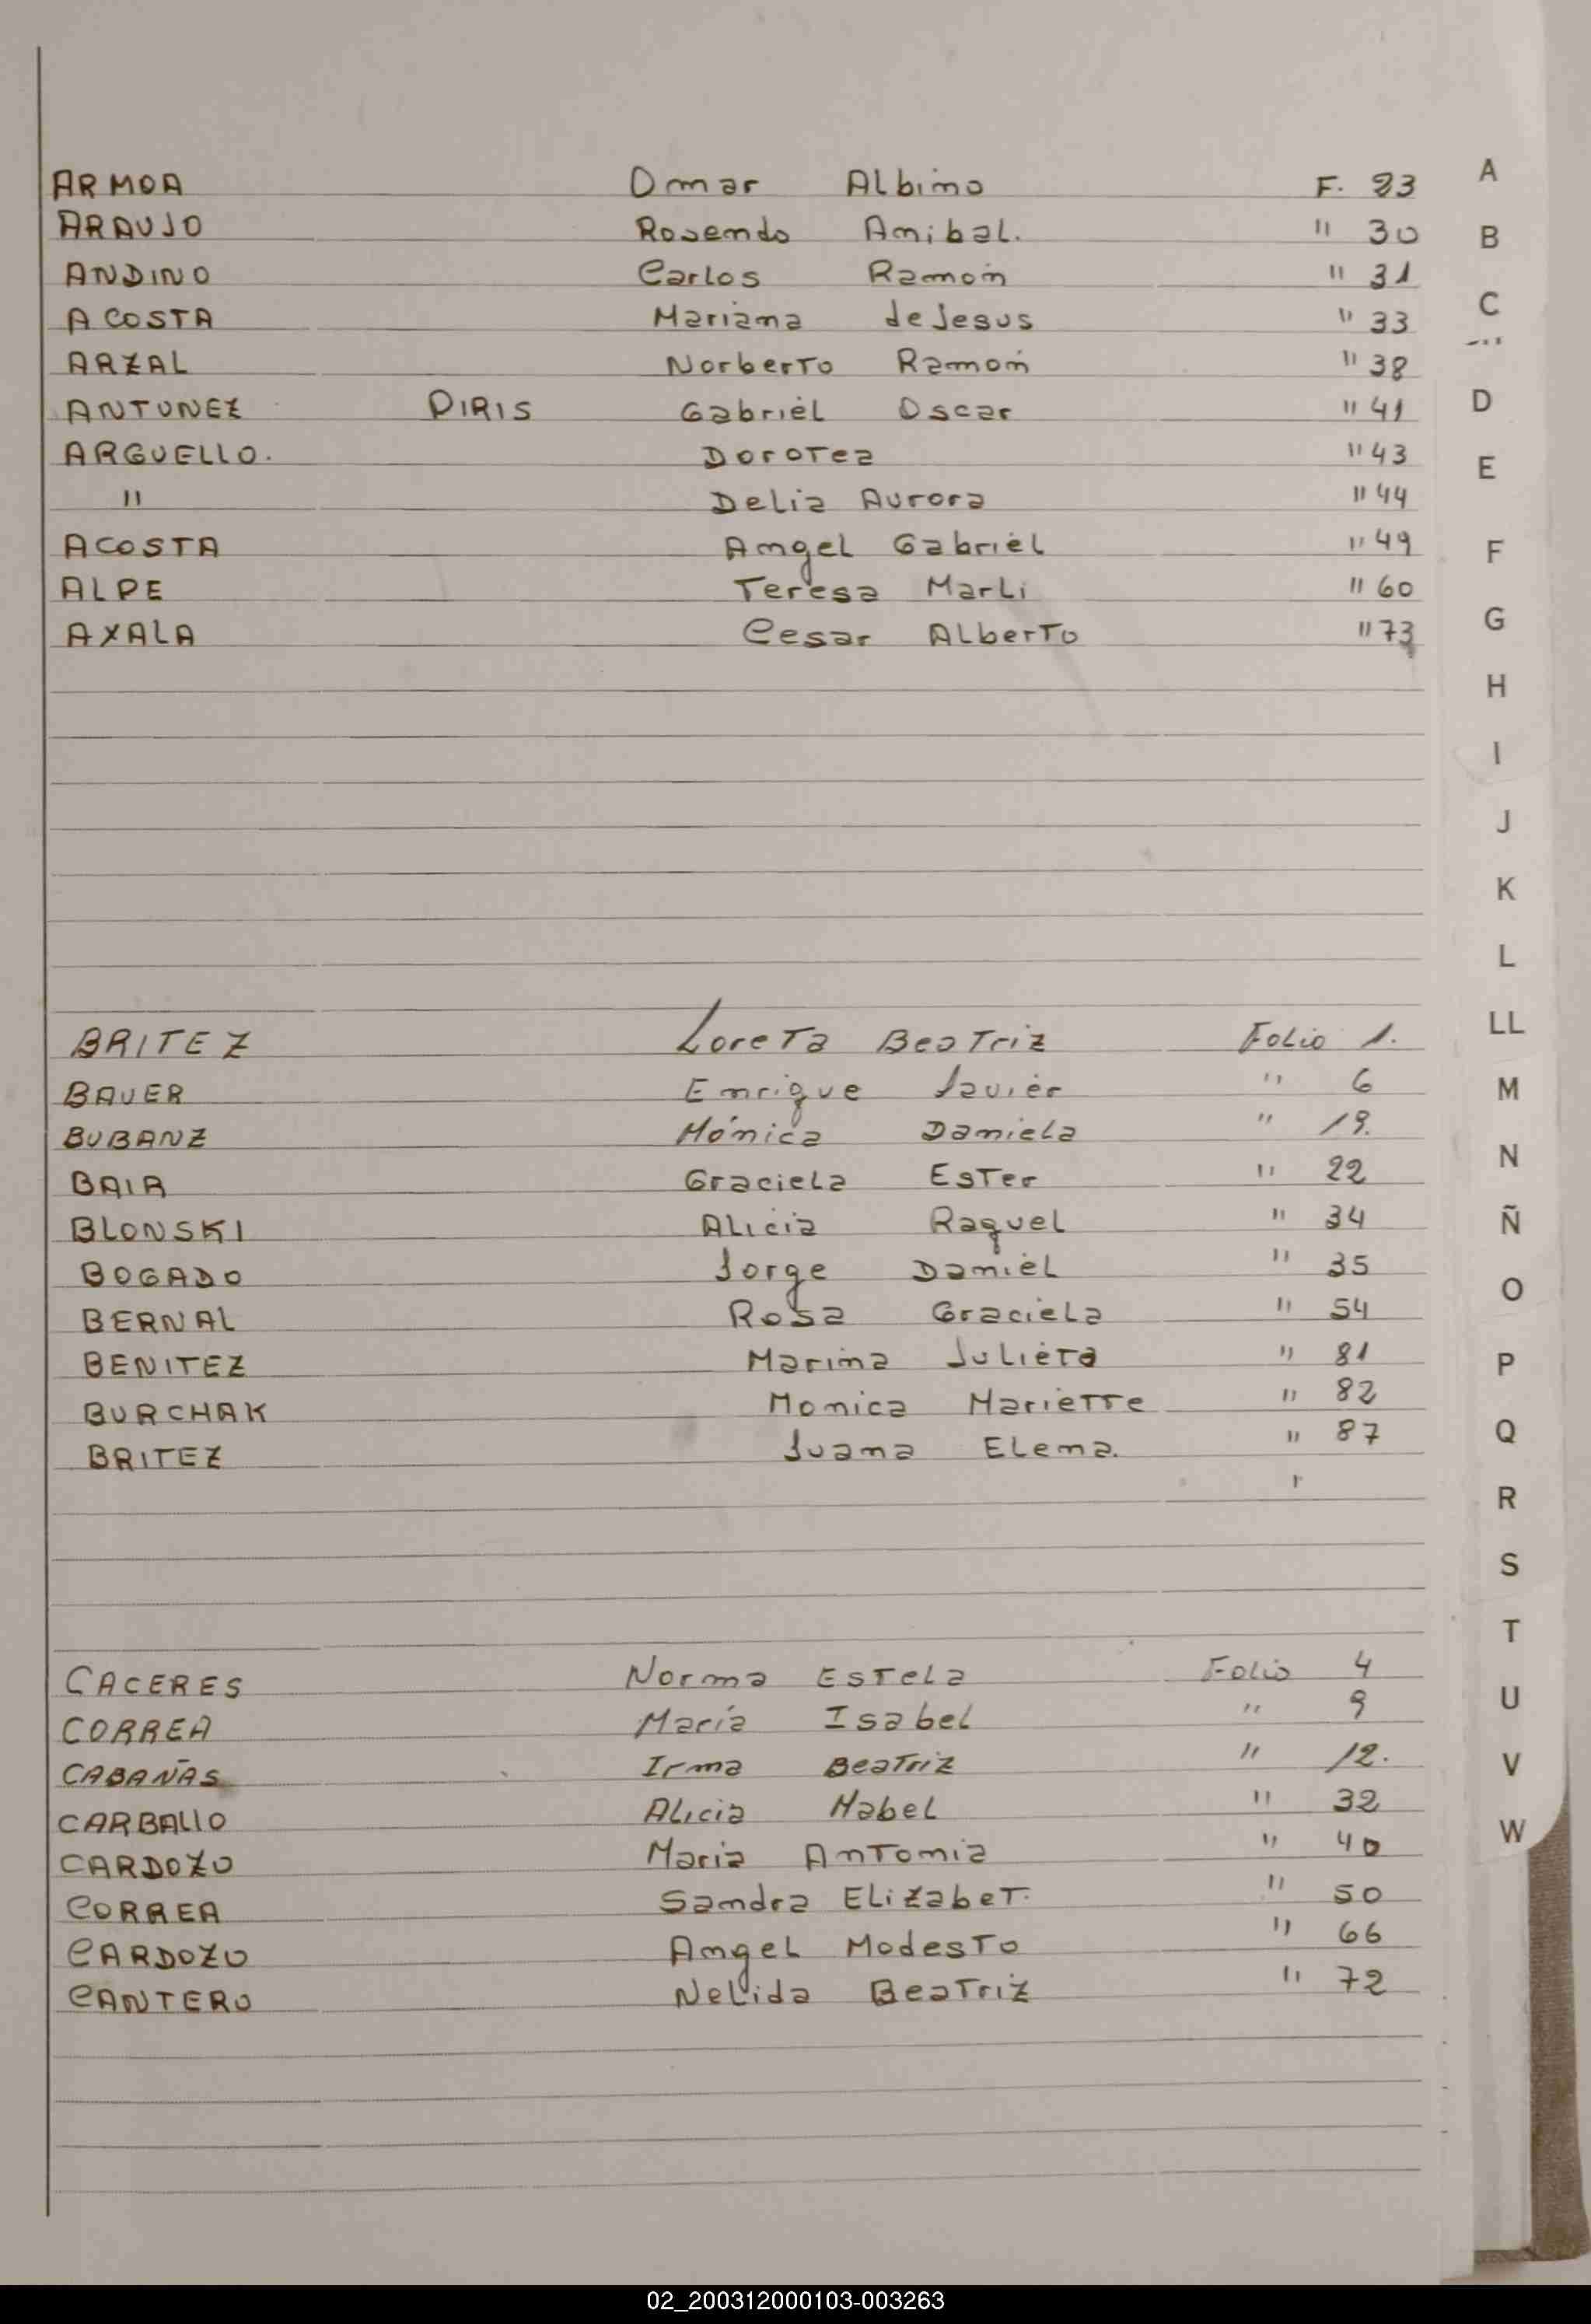 ARMOA Omar Albino F. 23
ARAUJO Rosendo Anibal. " 30
ANDINO Carlos Ramón " 31
ACOSTA Mariana de Jesus " 33
ARZAL Norberto Ramón " 38
ANTUNEZ PIRIS Gabriel Oscar " 41
ARGUELLO. Dorotea " 43
" Delia Aurora " 44
ACOSTA Angel Gabriel " 49
ALPE Teresa Marli " 60
AYALA Cesar Alberto " 73
BRITEZ Loreta Beatriz Folio 1.
BAUER Enrique Javier " 6
BUBANZ Mónica Daniela " 19.
BAIR Graciela Ester " 22
BLONSKI Alicia Raquel " 34
BOGADO Jorge Daniel " 35
BERNAL Rosa Graciela " 54
BENITEZ Marina Julieta " 81
BURCHAK Monica Mariette " 82
BRITEZ Juana Elena. " 87
CACERES Norma Estela Folio 4
CORREA María Isabel " 9
CABAÑAS Irma Beatriz " 12.
CARBALLO Alicia Mabel " 32
CARDOZO Maria Antonia " 40
CORREA Sandra Elizabet. " 50
CARDOZO Angel Modesto " 66
CANTERO Nelida Beatriz " 72
A
B
C
D
E
F
G
H
I
J
K
L
LL
M
N
Ñ
O
P
Q
R
S
T
U
V
W
02_200312000103-003263